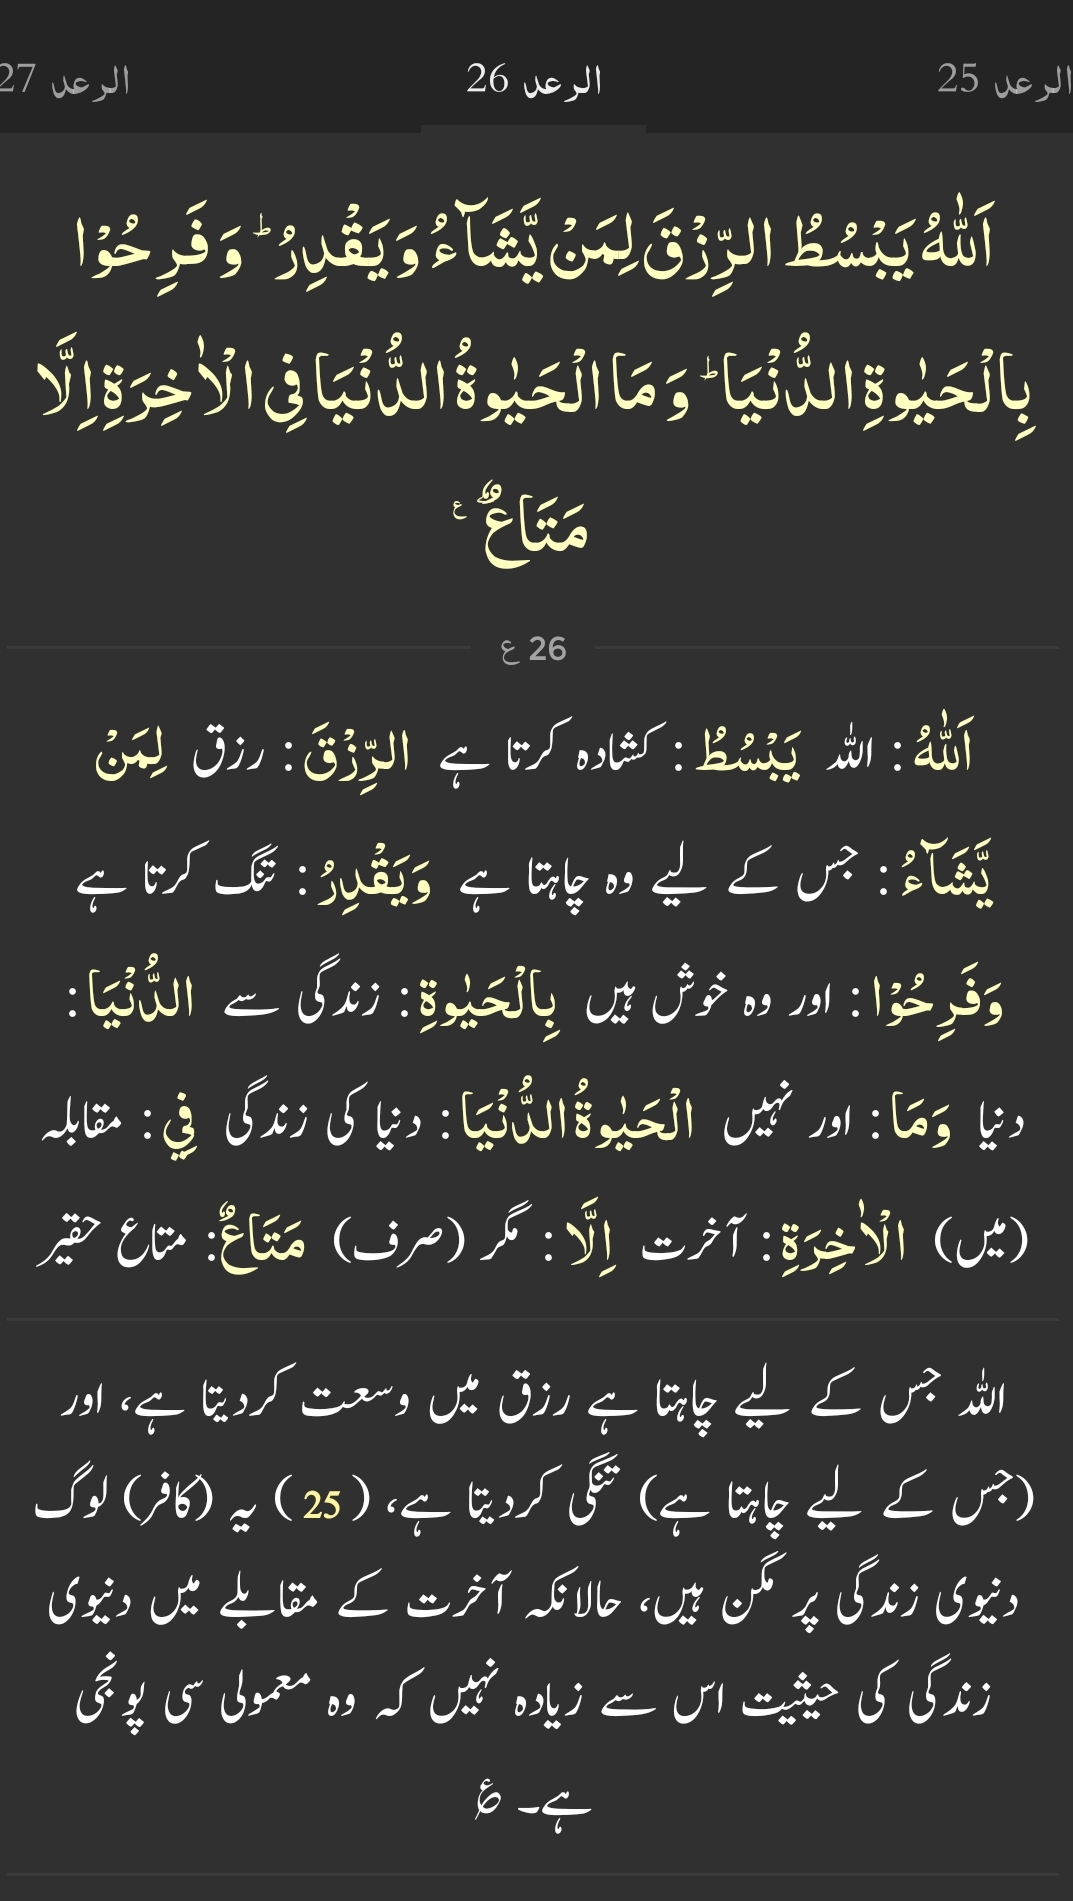 الرعد 25
الرعد 26
الرعد 27
اَللّٰهُ يَبْسُطُ الرِّزْقَ لِمَنْ يَّشَآءُ وَ يَقْدِرُ ؕ وَ فَرِحُوْا
بِالْحَيٰوةِ الدُّنْيَا ؕ وَ مَا الْحَيٰوةُ الدُّنْيَا فِى الْاٰخِرَةِ اِلَّا
مَتَاعٌ۠ ع
26 ع
اَللّٰهُ : اللہ يَبْسُطُ : کشادہ کرتا ہے الرِّزْقَ : رزق لِمَنْ
يَّشَآءُ : جس کے لیے وہ چاہتا ہے وَيَقْدِرُ : تنگ کرتا ہے
وَفَرِحُوْا : اور وہ خوش ہیں بِالْحَيٰوةِ : زندگی سے الدُّنْيَا :
دنیا وَمَا : اور نہیں الْحَيٰوةُ الدُّنْيَا : دنیا کی زندگی فِي : مقابلہ
(میں) الْاٰخِرَةِ : آخرت اِلَّا : مگر (صرف) مَتَاعٌ۠ : متاع حقیر
اللہ جس کے لیے چاہتا ہے رزق میں وسعت کردیتا ہے، اور
(جس کے لیے چاہتا ہے) تنگی کردیتا ہے، ( 25 ) یہ (کافر) لوگ
دنیوی زندگی پر مگن ہیں، حالانکہ آخرت کے مقابلے میں دنیوی
زندگی کی حیثیت اس سے زیادہ نہیں کہ وہ معمولی سی پونجی
ہے۔ ؏